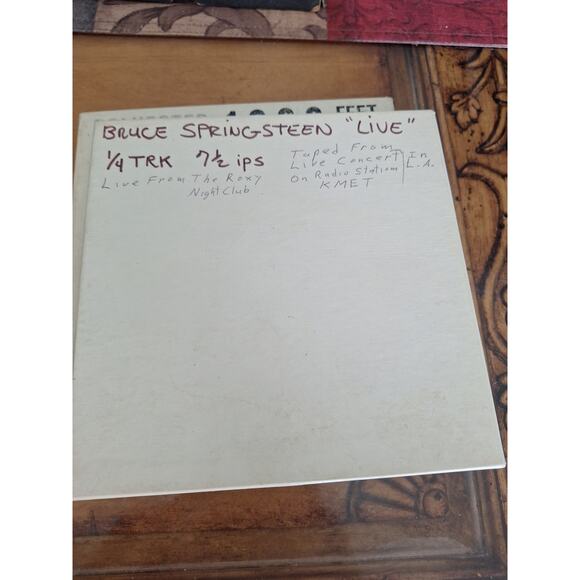 FEET
BRUCE SPRINGSTEEN "LIVE"
1/4 TRK 7 1/2 ips
Live From The Roxy
Night Club
Taped From
Live Concert
On Radio Station
KMET
In
L.A.